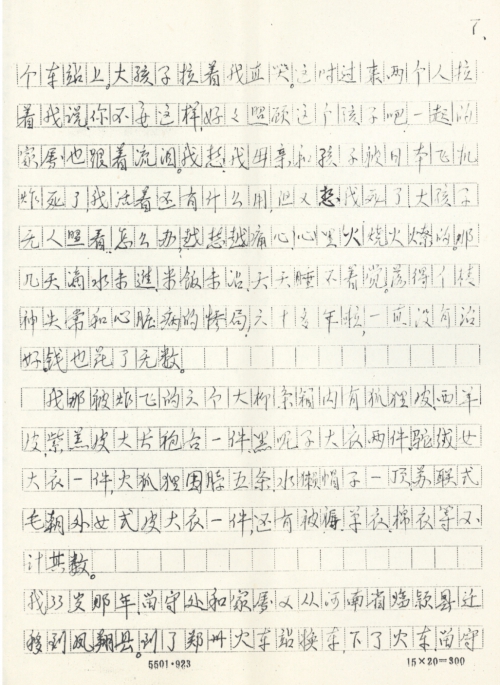 7.
个车站上。大孩子拉着我直哭。这时过来两个人拉
着我说,你不要这样,好好照顾这个孩子吧。一起的
家属也跟着流泪。我想我母亲和孩子被日本飞机
炸死了我活着还有什么用,但又想我死了大孩子
无人照看怎么办,越想越痛心,心里火烧火燎的。那
几天滴水未进米饭未沾,天天睡不着觉。落得个精
神失常和心脏病的惨局,六十多年啦,一直没有治
好。钱也花了无数。
我那被炸飞的六个大柳条箱内有狐狸皮、西羊
皮、紫羔皮大衣袍各一件,黑呢子大衣两件,驼绒女
大衣一件,火狐狸围脖五条,水獭帽子一顶,苏联式
毛朝外女式皮大衣一件,还有被褥、单衣、棉衣等不
计其数。
我33岁那年留守处和家属又从河南省临颍县迁
移到凤翔县。到了郑州火车站换车,下了火车留守
5501·923
15×20=300